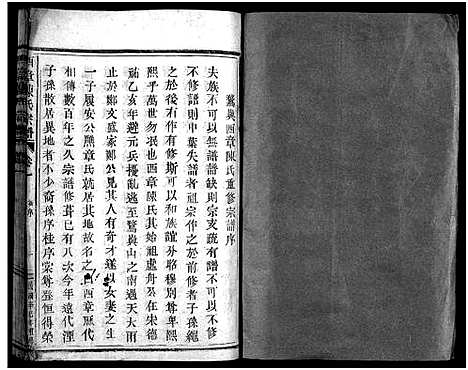 鷟與西章陳氏重修宗譜序
夫族不可以無譜譜缺則宗支疏有譜不
可不修譜則中葉失譜者祖宗作之於前修者子孫繩
之於後右作有修斯可以和族誼外胳穆別尊卑熙
熙乎萬世勿泯也西章陳氏其始祖處舟公在宋德
祐乙亥年避元兵擾亂逃至鷟與山之南過天大雨
止於鄭文盛家鄭公見其人有奇才遂以女妻之生
一子履安公凞章氏就居其地故名之曰西章歷代
相傳數百年之久宗譜修葺已有八次今年遠代湮
子孫散居異地者不少裔孫序桂序棠尊登恒得榮
西章陳氏宗譜
序